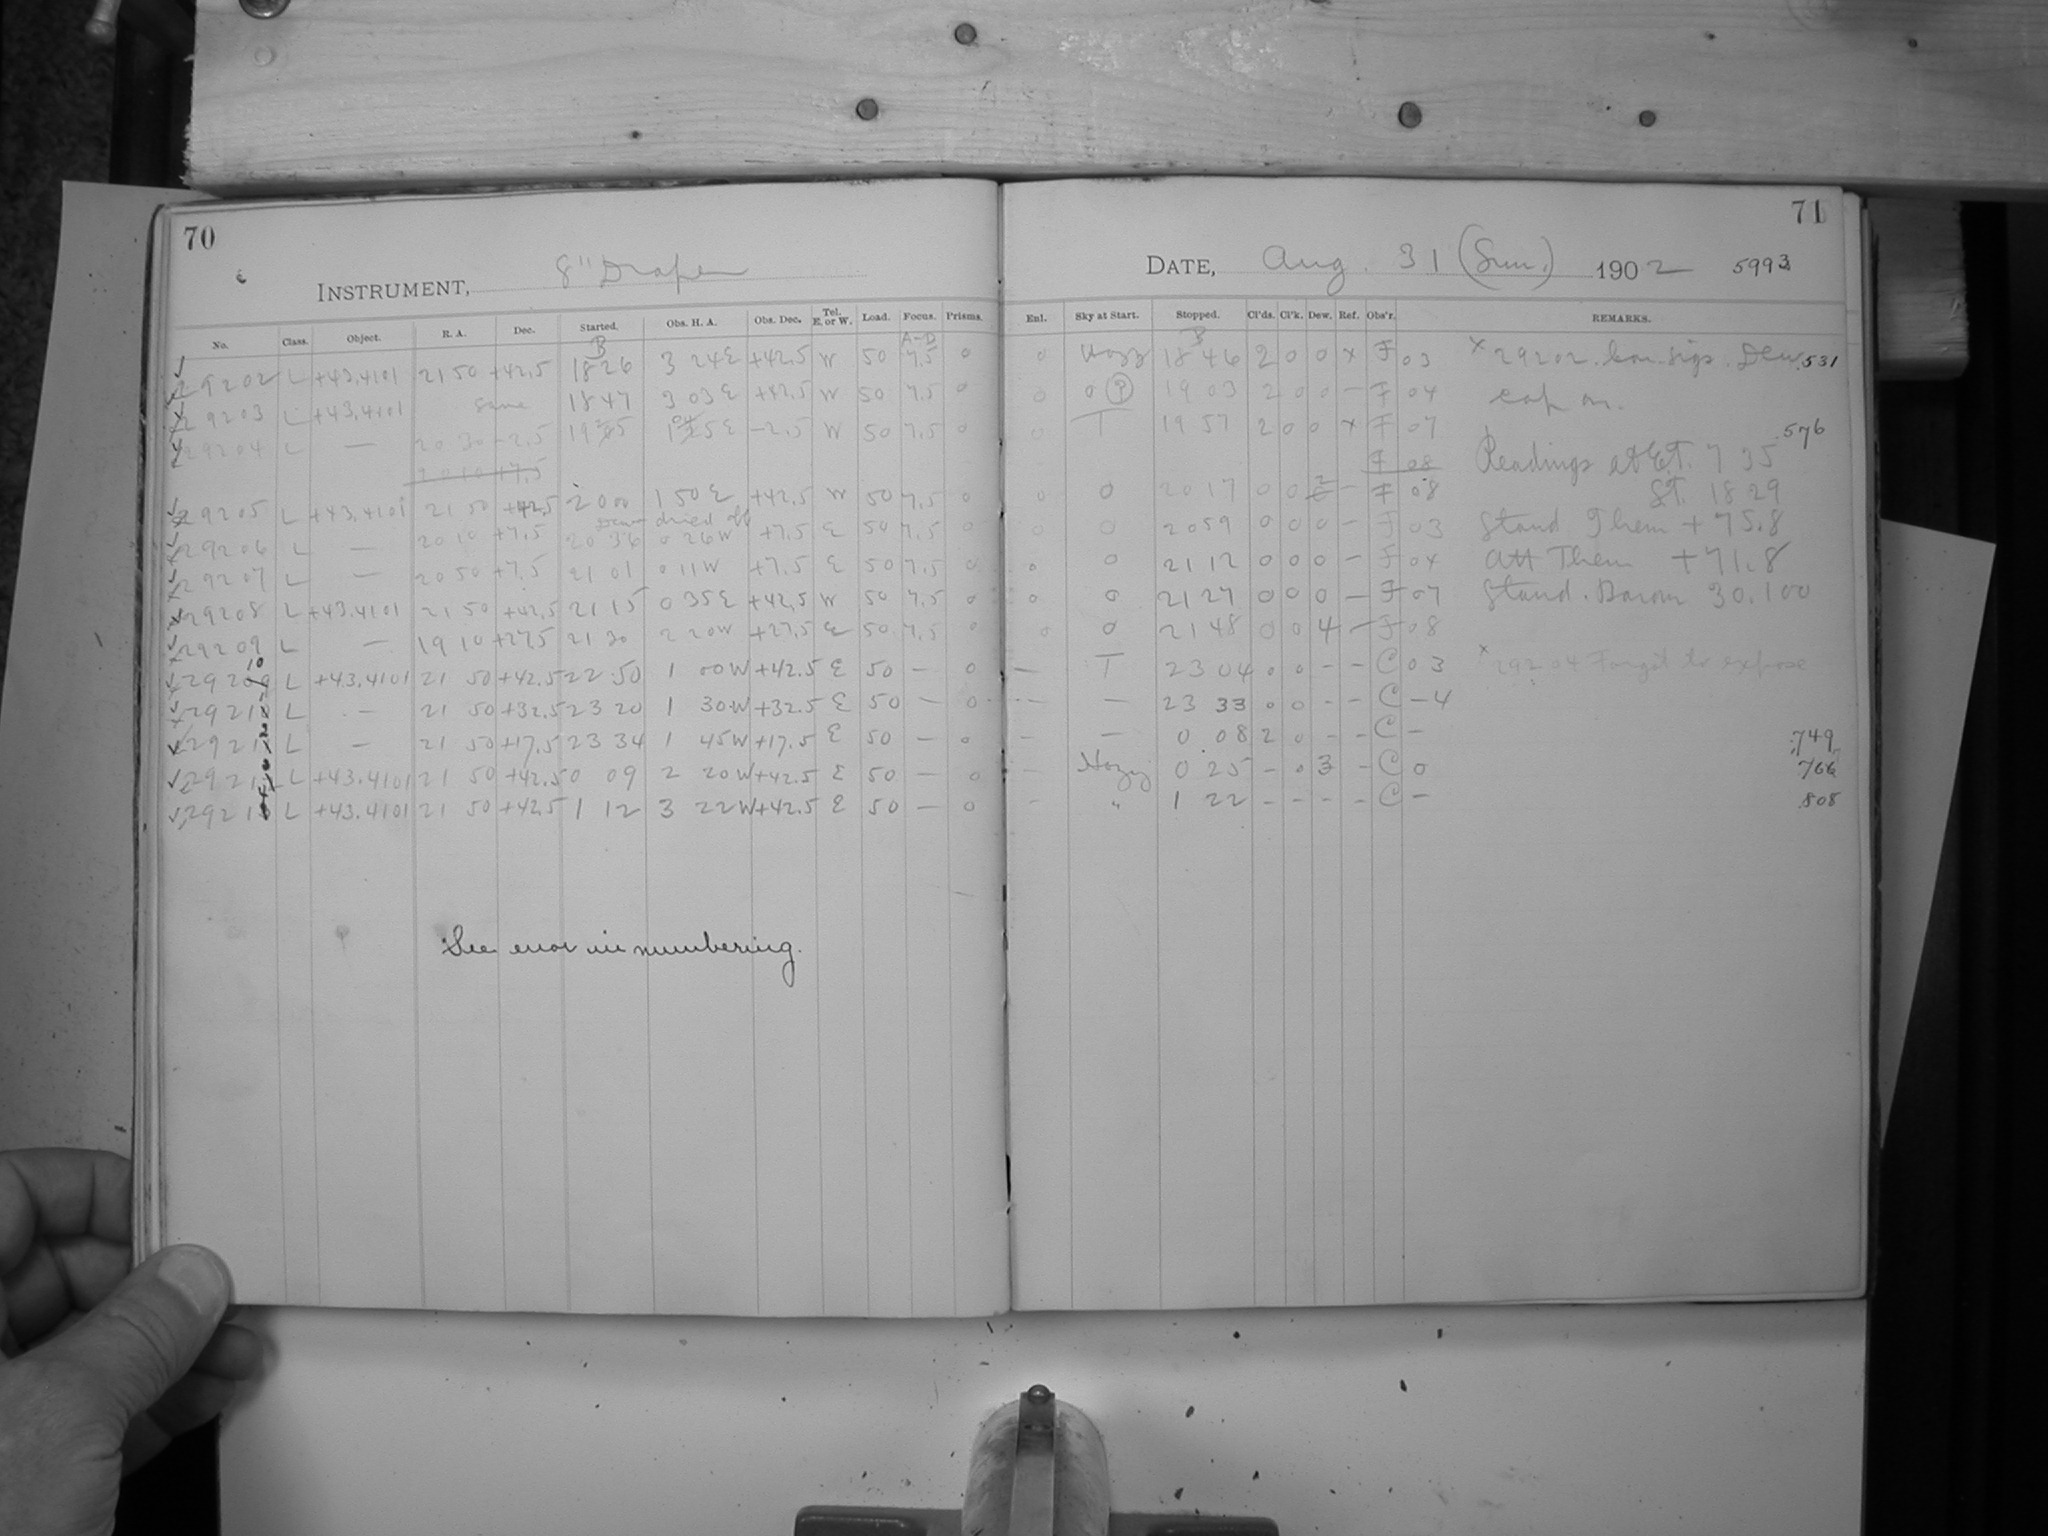 70
INSTRUMENT, 8" Draper
No. Class. Object. R. A. Dec. Started. Obs. H. A. Obs. Dec. Tel. E. or W. Load. Focus. Prisms.
B A-D
29202 L +43.4101 21 50 +42.5 18 26 3 24 E +42.5 W 50 7.5 0
29203 L +43.4101 same 18 47 3 03 E +42.5 W 50 7.5 0
29204 L — 20 30 -2.5 W 50 7.5 0
20 10 +7.5
29205 L +43.4101 21 50 +42.5 20 00 1 50 E +42.5 W 50 7.5 0
Dew dried off
29206 L — 20 10 +7.5 20 36 0 26 W +7.5 E 50 7.5 0
29207 L — 20 50 +7.5 21 01 0 11 W +7.5 E 50 7.5 0
29208 L +43.4101 21 50 +42.5 21 15 0 35 E +42.5 W 50 7.5 0
29209 L — 19 10 +27.5 21 30 2 20 W +27.5 E 50 7.5 0
10
29209 L +43.4101 21 50 +42.5 22 50 1 00 W +42.5 E 50 — 0
2921 L — 21 50 +32.5 23 20 1 30 W +32.5 E 50 — 0
2921 L — 21 50 +17.5 23 34 1 45 W +17.5 E 50 — 0
2921 L +43.4101 21 50 +42.5 0 09 2 20 W +42.5 E 50 — 0
2921 L +43.4101 21 50 +42.5 1 12 3 22 W +42.5 E 50 — 0
See error in numbering.
71
DATE, Aug. 31 (Sun.) 1902 5993
Enl. Sky at Start. Stopped. Cl'ds. Cl'k. Dew. Ref. Obs'r. REMARKS.
B
0 Hazy 18 46 2 0 0 x F 03 x 29202. Dew .531
0 0 (P) 19 03 2 0 0 – F 04 cap on.
0 T 19 57 2 0 0 x F 07 .576
F 08 Readings at E.T. 7 35
0 0 20 17 0 0 2 – F 08 S.T. 18 29
0 0 20 59 0 0 0 – F 03 Stand Them + 75.8
0 0 21 12 0 0 0 – F 04 Att Them + 71.8
0 0 21 27 0 0 0 – F 07 Stand. Barom 30.100
0 0 21 48 0 0 4 – F 08
— T 23 04 0 0 – – C 03 x 29204 Forgot to expose
— — 23 33 0 0 – – C –4
– — 0 08 2 0 – – C – .749
— Hazy 0 25 – 0 3 – C 0 .766
– " 1 22 – – – – C – .808